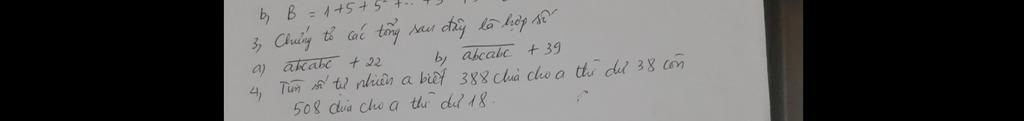 b, B = 1+5+5² + ...
3, Chứng tỏ các tổng sau đây là hợp số
a) abcabc + 22 b, abcabc + 39
4, Tìm số tự nhiên a biết 388 chia cho a thì dư 38 còn
508 chia cho a thì dư 18.